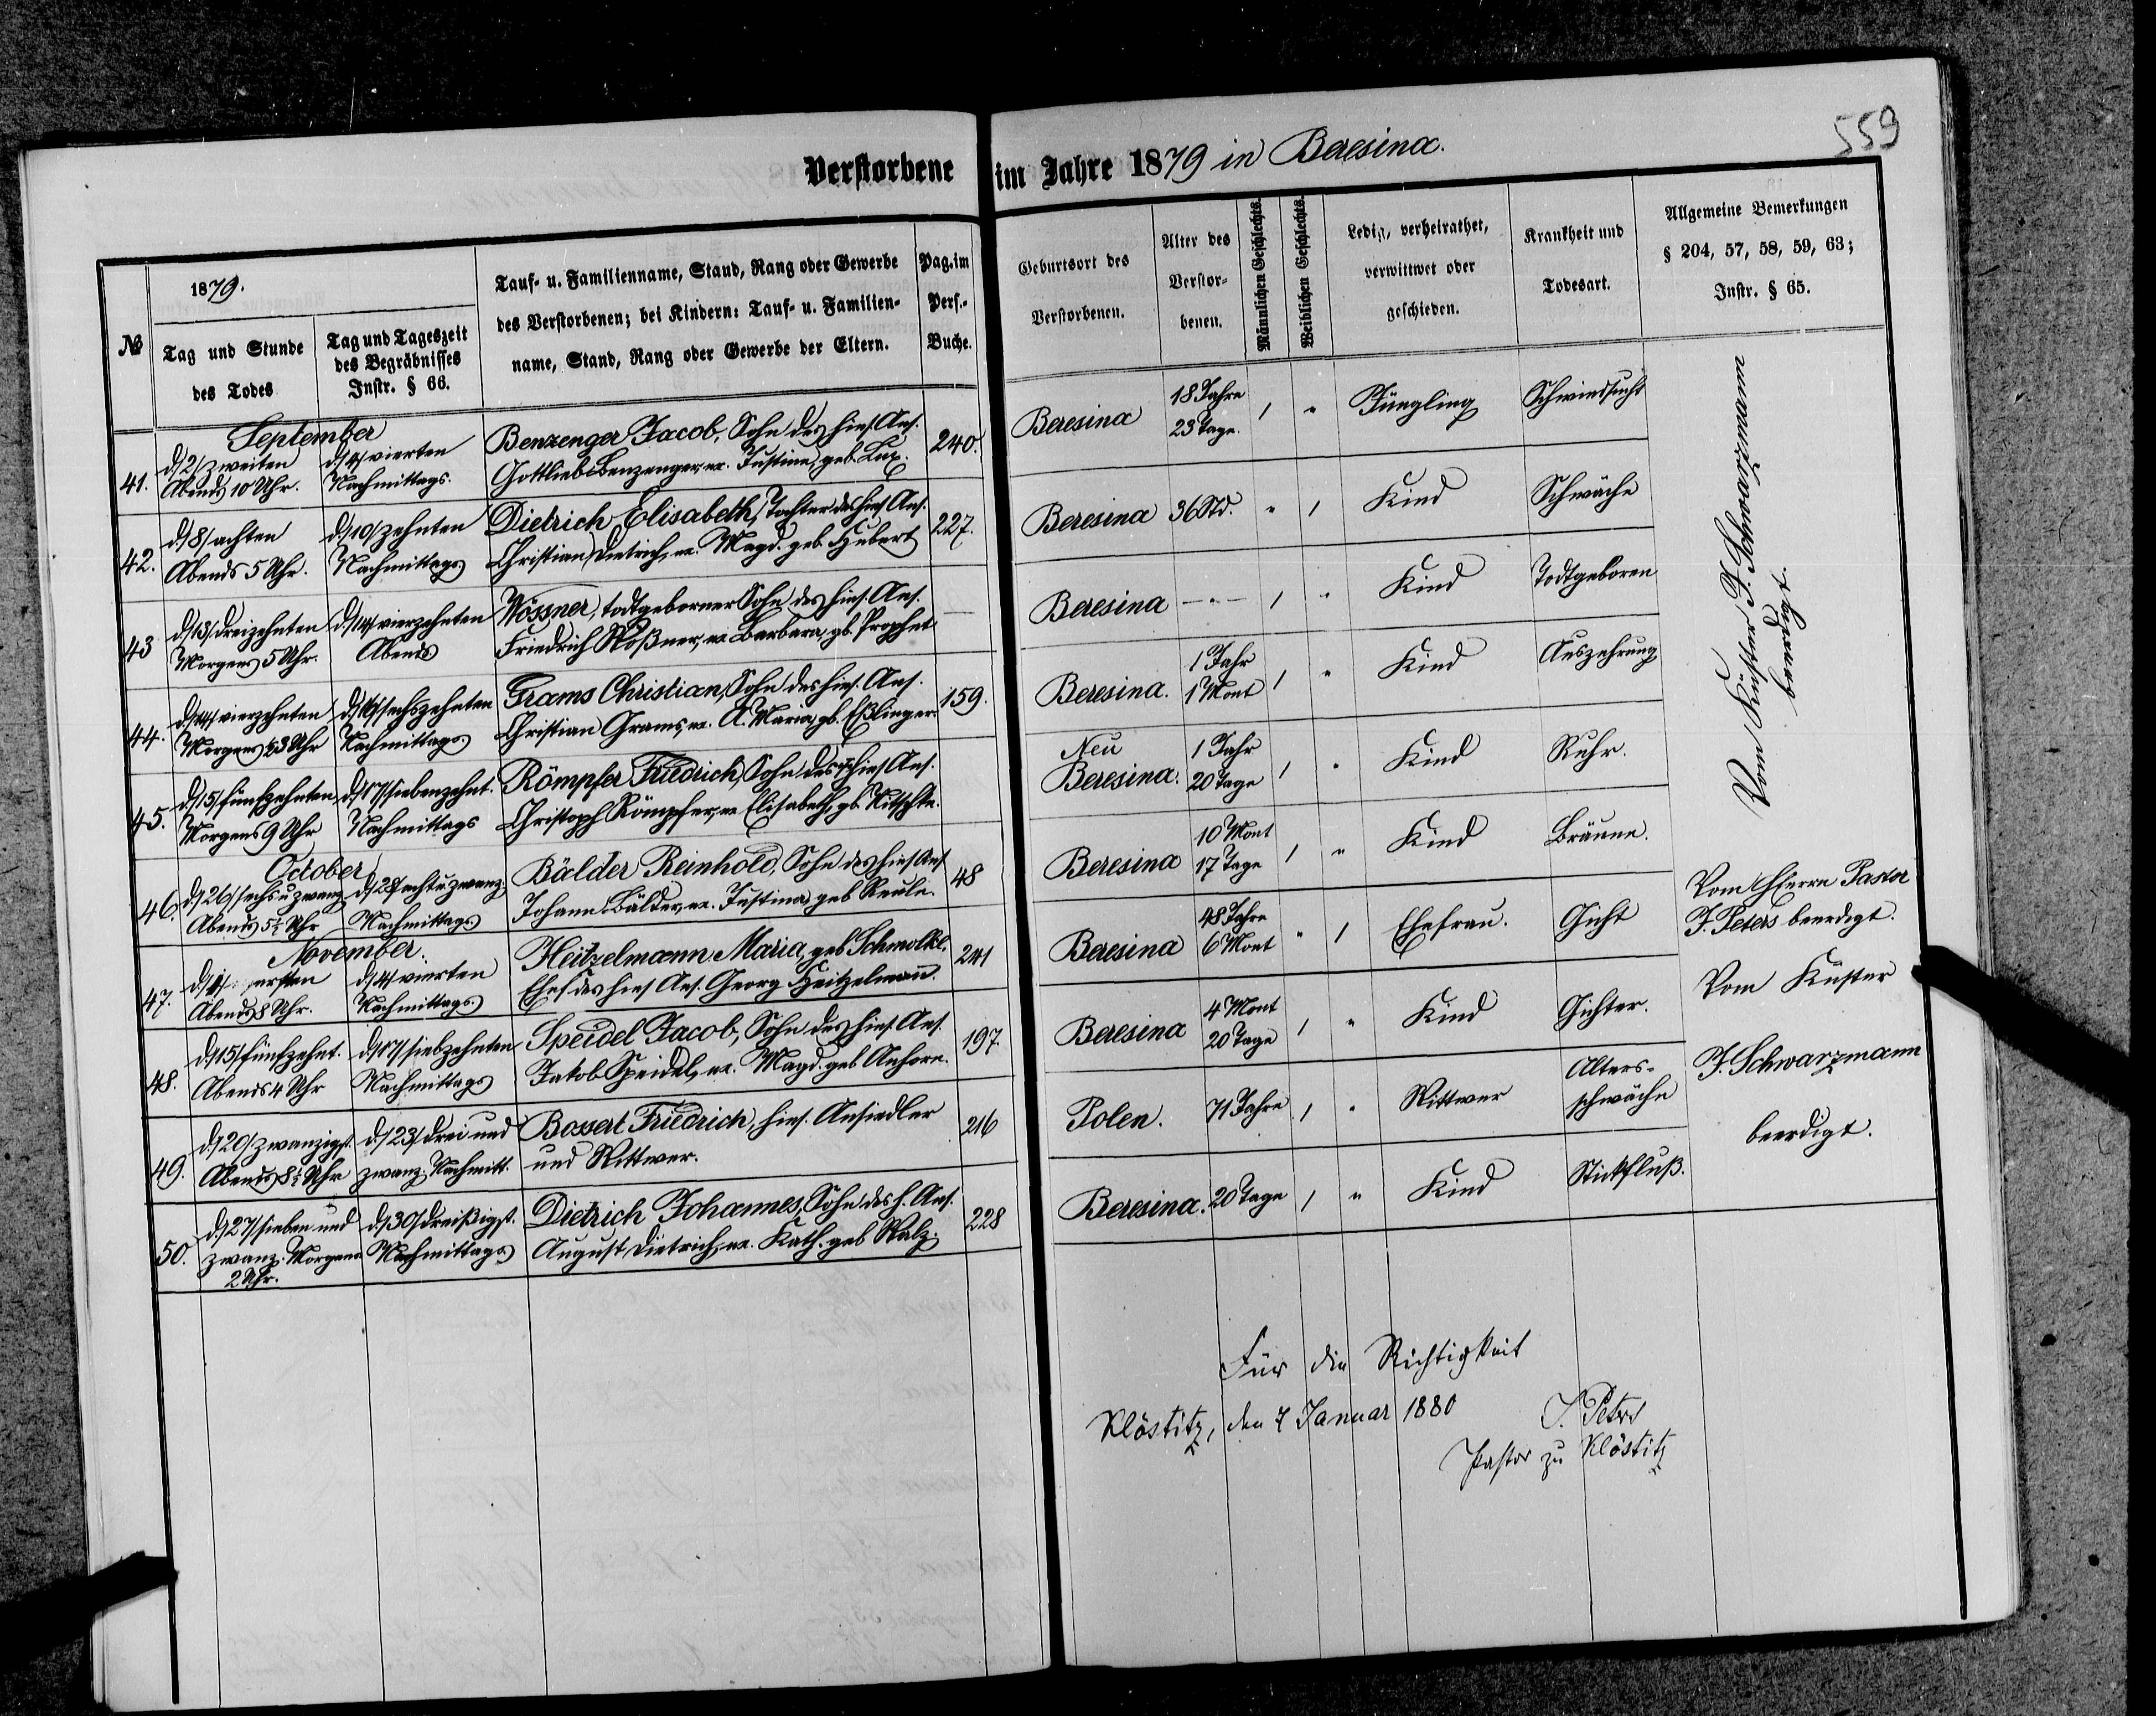 559
Verstorbene im Jahre 1879 in Beresina.
№
1879.
Tag und Stunde
des Todes
Tag und Tageszeit
des Begräbnisses
Instr. § 66.
Tauf- u. Familienname, Stand, Rang oder Gewerbe
des Verstorbenen; bei Kindern: Tauf- u. Familien-
name, Stand, Rang oder Gewerbe der Eltern.
Pag. im
Pers.-
Buche.
Geburtsort des
Verstorbenen.
Alter des
Verstor-
benen.
Männlichen Geschlechts.
Weiblichen Geschlechts.
Ledig, verheirathet,
verwittwet oder
geschieden.
Krankheit und
Todesart.
Allgemeine Bemerkungen
§ 204, 57, 58, 59, 63;
Instr. § 65.
September
41.
d. /2/ zweiten
Abends 10 Uhr.
d. /4/ vierten
Nachmittags.
Benzenger Jacob, Sohn des hies. Ans.
Gottlieb Benzenger, u. Justine, geb. Lux.
240.
Beresina
18 Jahre
23 Tage.
/ "
Jüngling
Schwindsucht
42.
d. /8/ achten
Abends 5 Uhr.
d. /10/ zehnten
Nachmittags
Dietrich Elisabeth, Tochter des hies. Ans.
Christian Dietrich, u. Magd. geb. Hubert
227.
Beresina
36 Std.
" /
Kind
Schwäche
43
d. /13/ dreizehnten
Morgens 5 Uhr.
d. /14/ vierzehnten
Abends
Wössner, todtgeborner Sohn des hies. Ans.
Friedrich Wößner, u. Barbara, gb. Prophet
—
Beresina
— " —
/ "
Kind
Todtgeboren
44.
d. /14/ vierzehnten
Morgens ½3 Uhr
d. /16/ sechszehnten
Nachmittags
Grams Christian, Sohn des hies. Ans.
Christian Grams, u. A. Maria, gb. Eßlinger.
159.
Beresina.
1 Jahr
1 Mont
/ "
Kind
Auszehrung
45.
d. /15/ fünfzehnten
Morgens 9 Uhr
d. /17/ siebenzehnt.
Nachmittags
Römpfer Friedrich, Sohn des hies. Ans.
Christoph Römpfer, u. Elisabeth, gb. Nitschke.
Neu
Beresina.
1 Jahr
20 Tage
/ "
Kind
Ruhr.
Vom Küster J. Schwarzmann
beerdigt.
October
46.
d. /26/ sechs u zwanz
Abends 5½ Uhr
d. /28/ acht u zwanz.
Nachmittags
Bälder Reinhold, Sohn des hies Ans
Johann Bälder, u. Justina geb Reule.
48
Beresina
10 Mont
17 Tage
/ "
Kind
Bräune.
November.
47.
d. /1/ ersten
Abends 8 Uhr.
d. /4/ vierten
Nachmittags
Heitzelmann Maria, geb Schmolke.
Ehef des hies Ans. Georg Heitzelmann.
241
Beresina
48 Jahre
6 Mont
" /
Ehefrau.
Gicht
Vom Herrn Pastor
J. Peters beerdigt.
48.
d. /15/ fünfzehnt.
Abends 4 Uhr
d. /17/ siebzehnten
Nachmittags
Speidel Jacob, Sohn des hies. Ans.
Jakob Speidel, u. Magd. geb Anhorn.
197
Beresina
4 Mont
20 Tage
/ "
Kind
Gichter.
49.
d. /20/ zwanzigst.
Abends 8½ Uhr
d. /23/ drei und
zwanz. Nachmitt.
Bossert Friedrich, hies. Ansiedler
und Wittwer.
216
Polen.
71 Jahre
/ "
Wittwer
Alters-
schwäche
50.
d. /27/ sieben und
zwanz. Morgens
2 Uhr.
d. /30/ dreißigst.
Nachmittags
Dietrich Johannes, Sohn des h. Ans.
August Dietrich, u. Kath. geb Walz.
228
Beresina.
20 Tage
/ "
Kind
Stickfluß.
Vom Küster
J. Schwarzmann
beerdigt.
Für die Richtigkeit
Klöstitz, den 7 Januar 1880
J. Peters
Pastor zu Klöstitz